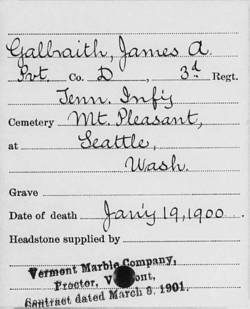 Galbraith, James A.
Pvt. Co. D, 3d Regt.
Tenn. Inf'y
Cemetery Mt. Pleasant,
at Seattle,
Wash.
Grave
Date of death Jan'y 19, 1900.
Headstone supplied by
Vermont Marble Company,
Proctor, Vermont.
Contract dated March 8, 1901.